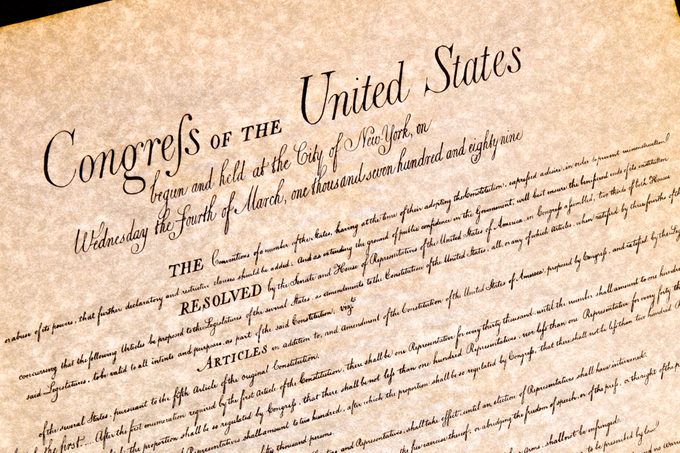 Congreſs OF THE United States
begun and held at the City of New-York, on
Wednesday the Fourth of March, one thousand seven hundred and eighty nine
THE Conventions of a number of the States, having at the time of their adopting the Constitution, expreſsed a desire, in order to prevent misconstruction
or abuse of its powers, that further declaratory and restrictive clauses should be added: And as extending the ground of public confidence in the Government, will best insure the beneficent ends of its institution
RESOLVED by the Senate and House of Representatives of the United States of America, in Congreſs aſsembled, two thirds of both Houses
concurring that the following Articles be proposed to the Legislatures of the several States, as amendments to the Constitution of the United States, all, or any of which articles, when ratified by three fourths of the
said Legislatures, to be valid to all intents and purposes, as part of the said Constitution; vizt
ARTICLES in addition to, and amendment of the Constitution of the United States of America, proposed by Congreſs, and ratified by the
of the several States, pursuant to the fifth Article of the original Constitution.
the first... After the first enumeration required by the first Article of the Constitution, there shall be one Representative for every thirty thousand, until the number shall amount to one hundred
the proportion shall be so regulated by Congreſs, that there shall not be leſs than one hundred Representatives, nor leſs than one Representative for every forty
Representatives shall amount to two hundred, after which the proportion shall be so regulated by Congreſs, that there shall not be leſs than two hundred
thousand persons.
and Representatives, shall take effect, until an election of Representatives shall have intervened.
the free exercise thereof; or abridging the freedom of speech, or of the preſs, or the right of the
shall not be infringed.
to be prescribed by law.